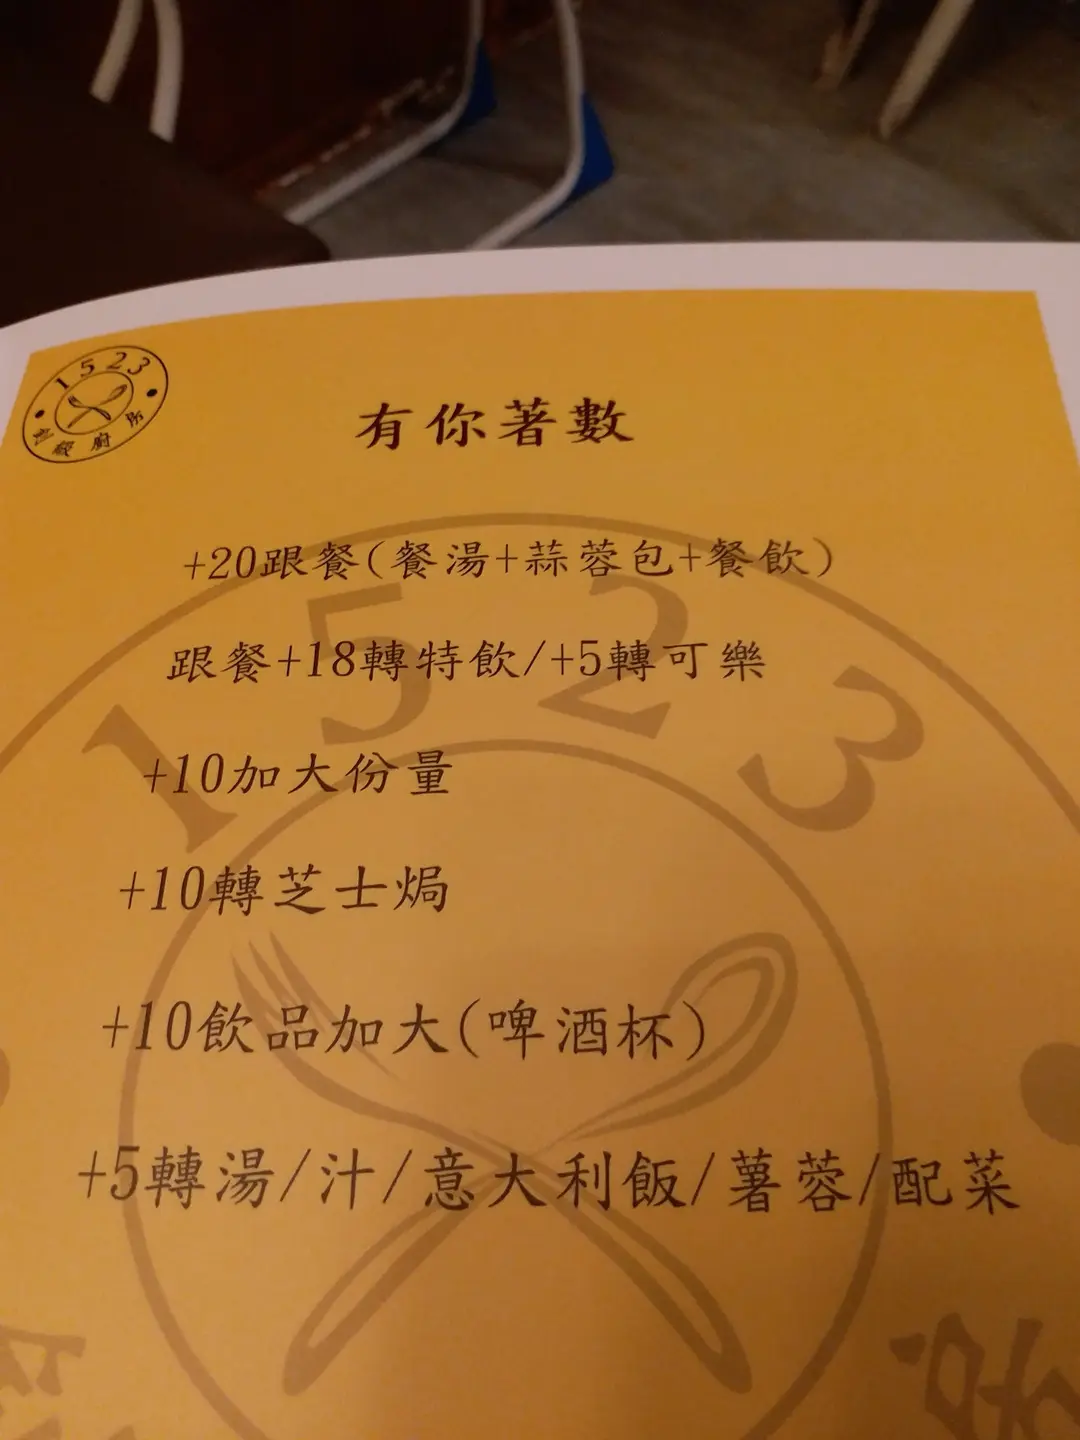 1523
廚房
有你著數
+20跟餐(餐湯+蒜蓉包+餐飲)
跟餐+18轉特飲/+5轉可樂
+10加大份量
+10轉芝士焗
+10飲品加大(啤酒杯)
+5轉湯/汁/意大利飯/薯蓉/配菜
1523